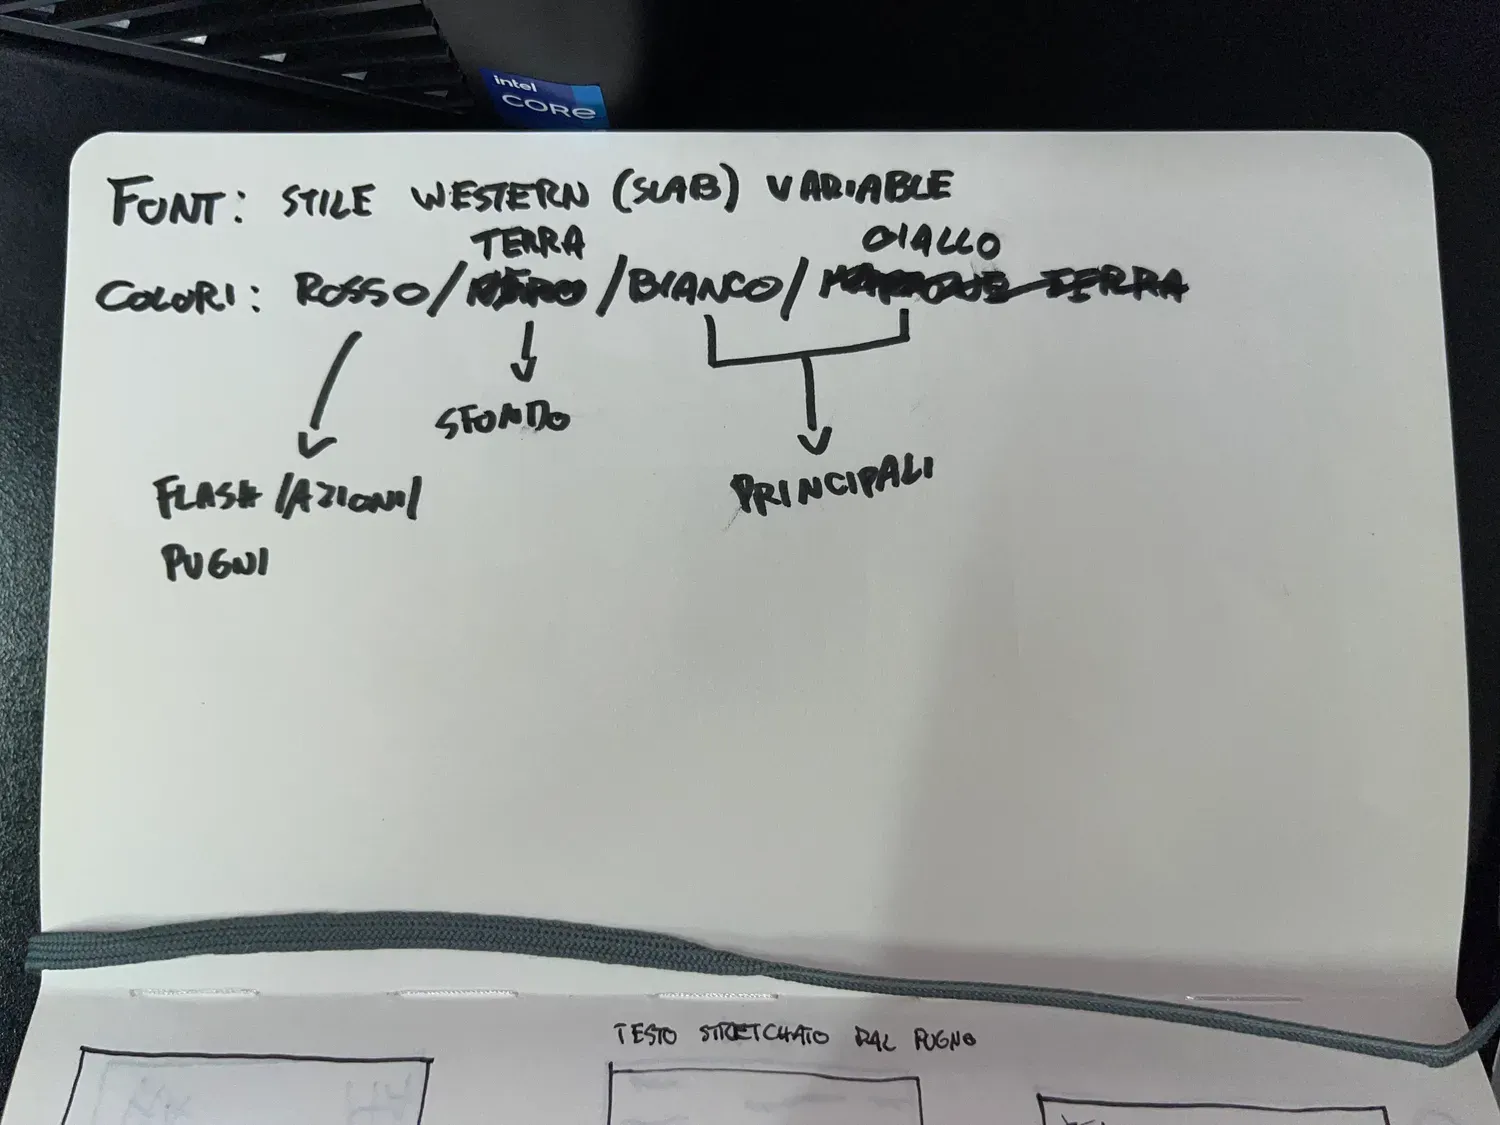 intel
CORe
FONT: STILE WESTERN (SLAB) VARIABLE
TERRA GIALLO
COLORI: ROSSO / NERO / BIANCO / TERRA
SFONDO
PRINCIPALI
FLASH /AZIONI/
PUGNI
TESTO STRETCHATO DAL PUGNO